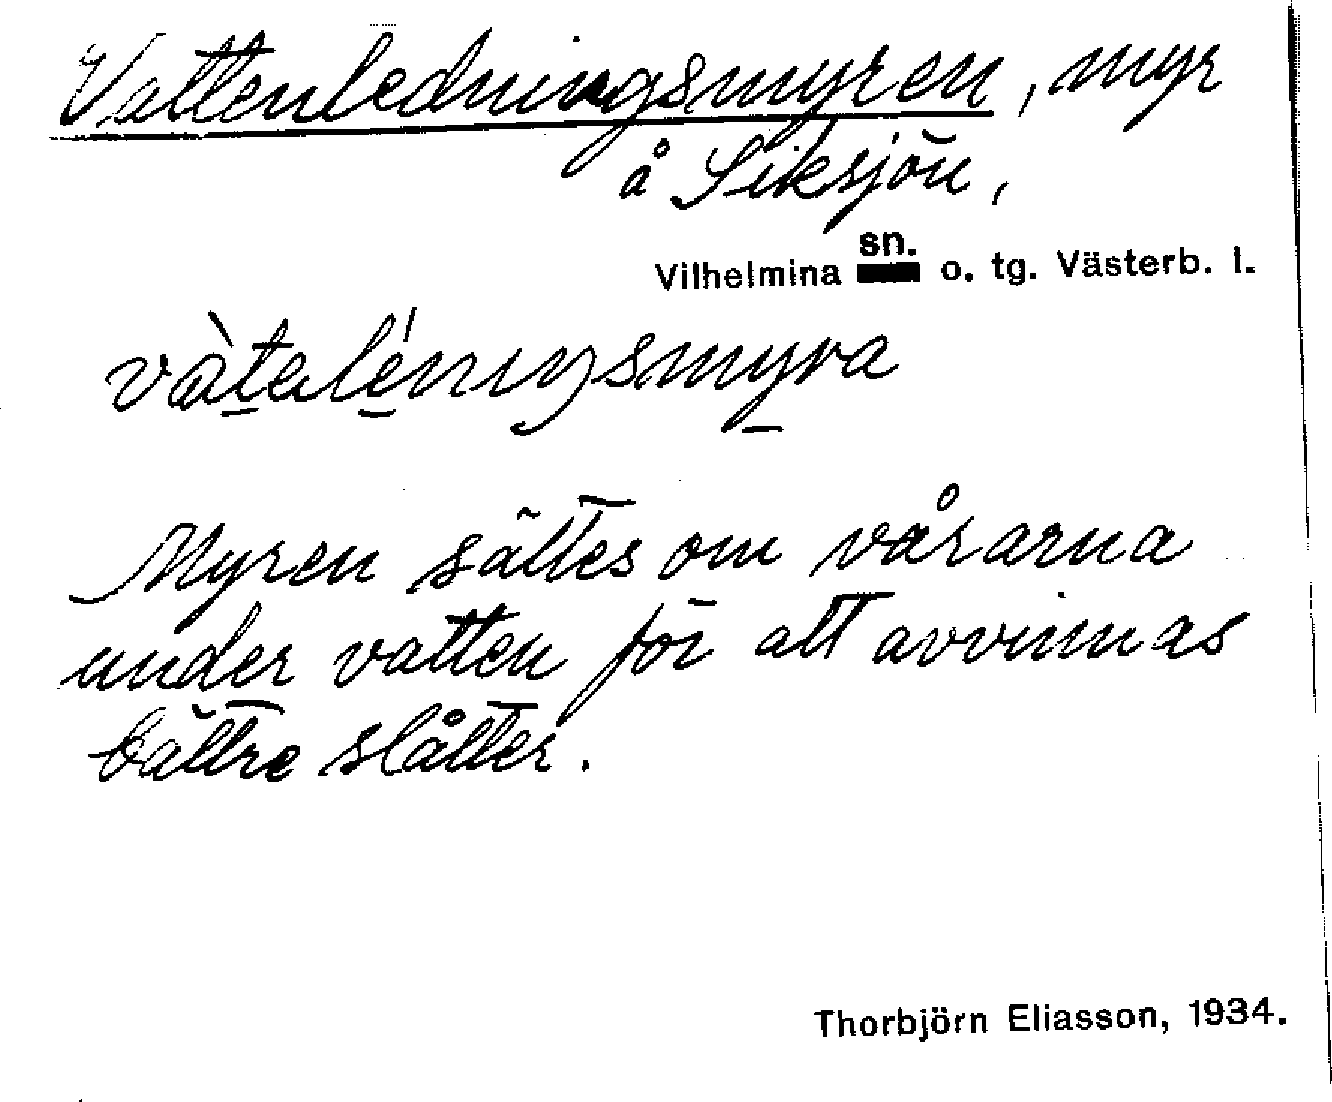 Vattenledningsmyren, myr
å Siksjön,
sn.
Vilhelmina o. tg. Västerb. l.
vàtaléniŋsmyra
Myren sättes om vårarna
under vatten för att avvinnas
bättre slåtter.
Thorbjörn Eliasson, 1934.